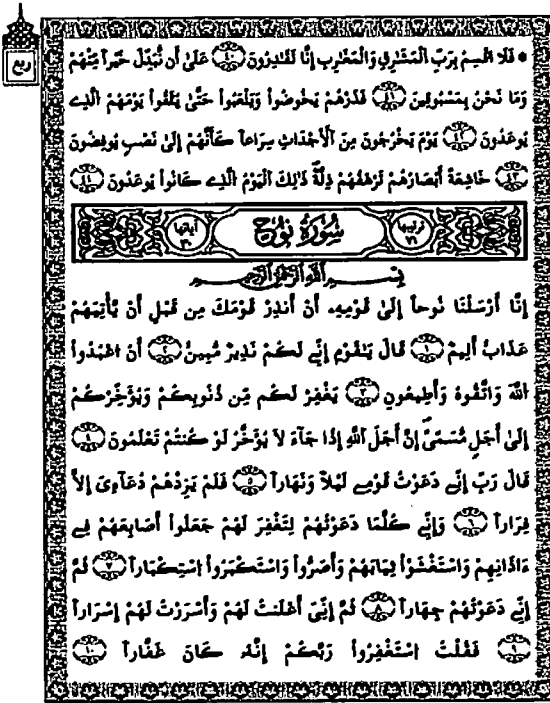 ربع
* فَلَا أُقْسِمُ بِرَبِّ الْمَشَارِقِ وَالْمَغَارِبِ إِنَّا لَقَادِرُونَ ٤٠ عَلَىٰ أَن نُّبَدِّلَ خَيْراً مِّنْهُمْ
وَمَا نَحْنُ بِمَسْبُوقِينَ ٤١ فَذَرْهُمْ يَخُوضُواْ وَيَلْعَبُواْ حَتَّىٰ يُلَٰقُواْ يَوْمَهُمُ الَّذِي
يُوعَدُونَ ٤٢ يَوْمَ يَخْرُجُونَ مِنَ الْأَجْدَاثِ سِرَاعاً كَأَنَّهُمْ إِلَىٰ نَصْبٍ يُوفِضُونَ
٤٣ خَاشِعَةً أَبْصَارُهُمْ تَرْهَقُهُمْ ذِلَّةٌ ذَٰلِكَ الْيَوْمُ الَّذِي كَانُواْ يُوعَدُونَ ٤٤
ترتيبها ٧١ سُورَةُ نُوحٍ آياتها ٣٠
بِسْمِ اللَّهِ الرَّحْمَٰنِ الرَّحِيمِ
إِنَّا أَرْسَلْنَا نُوحاً إِلَىٰ قَوْمِهِ أَنْ أَنذِرْ قَوْمَكَ مِن قَبْلِ أَنْ يَّأْتِيَهُمْ
عَذَابٌ أَلِيمٌ ١ قَالَ يَٰقَوْمِ إِنِّي لَكُمْ نَذِيرٌ مُّبِينٌ ٢ أَنُ اعْبُدُواْ
اللَّهَ وَاتَّقُوهُ وَأَطِيعُونِ ٣ يَغْفِرْ لَكُم مِّن ذُنُوبِكُمْ وَيُؤَخِّرْكُمْ
إِلَىٰ أَجَلٍ مُّسَمًّى إِنَّ أَجَلَ اللَّهِ إِذَا جَآءَ لَا يُؤَخَّرُ لَوْ كُنتُمْ تَعْلَمُونَ ٤
قَالَ رَبِّ إِنِّي دَعَوْتُ قَوْمِي لَيْلاً وَنَهَاراً ٥ فَلَمْ يَزِدْهُمْ دُعَآءِيَ إِلَّا
فِرَاراً ٦ وَإِنِّي كُلَّمَا دَعَوْتُهُمْ لِتَغْفِرَ لَهُمْ جَعَلُواْ أَصَابِعَهُمْ فِي
ءَاذَانِهِمْ وَاسْتَغْشَوْاْ ثِيَابَهُمْ وَأَصَرُّواْ وَاسْتَكْبَرُواْ اسْتِكْبَاراً ٧ ثُمَّ
إِنِّي دَعَوْتُهُمْ جِهَاراً ٨ ثُمَّ إِنِّيَ أَعْلَنتُ لَهُمْ وَأَسْرَرْتُ لَهُمْ إِسْرَاراً
٩ فَقُلْتُ اسْتَغْفِرُواْ رَبَّكُمْ إِنَّهُ كَانَ غَفَّاراً ١٠